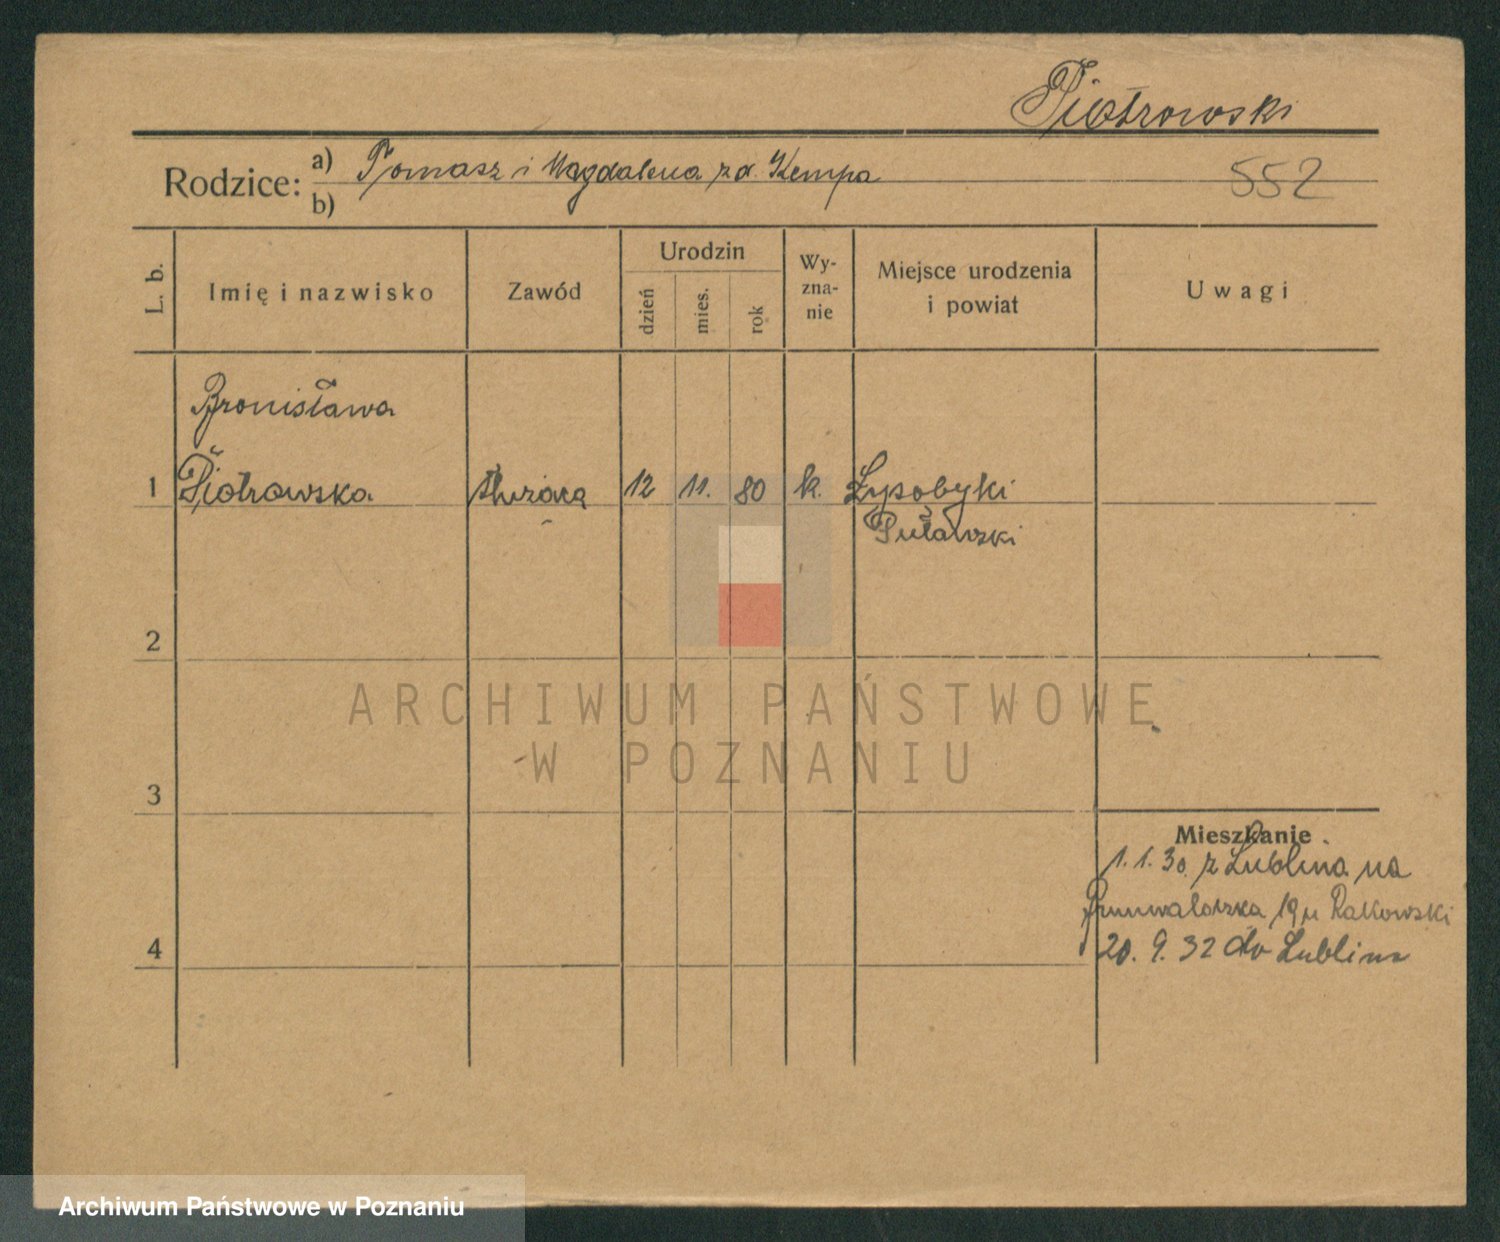 Piotrowski
Rodzice: a) Tomasz i Magdalena zd. Kempa
b)
552
L. b.
Imię i nazwisko
Zawód
Urodzin
dzień
mies.
rok
Wy-
zna-
nie
Miejsce urodzenia
i powiat
Uwagi
Bronisława
1 Piotrowska 12 11. 80 k. Łysobyki
Puławski
2
ARCHIWUM PAŃSTWOWE
W POZNANIU
3
Mieszkanie
1.1.30. z Lublina na
19 u Rakowski
4
20. 9. 32 do Lublina
Archiwum Państwowe w Poznaniu